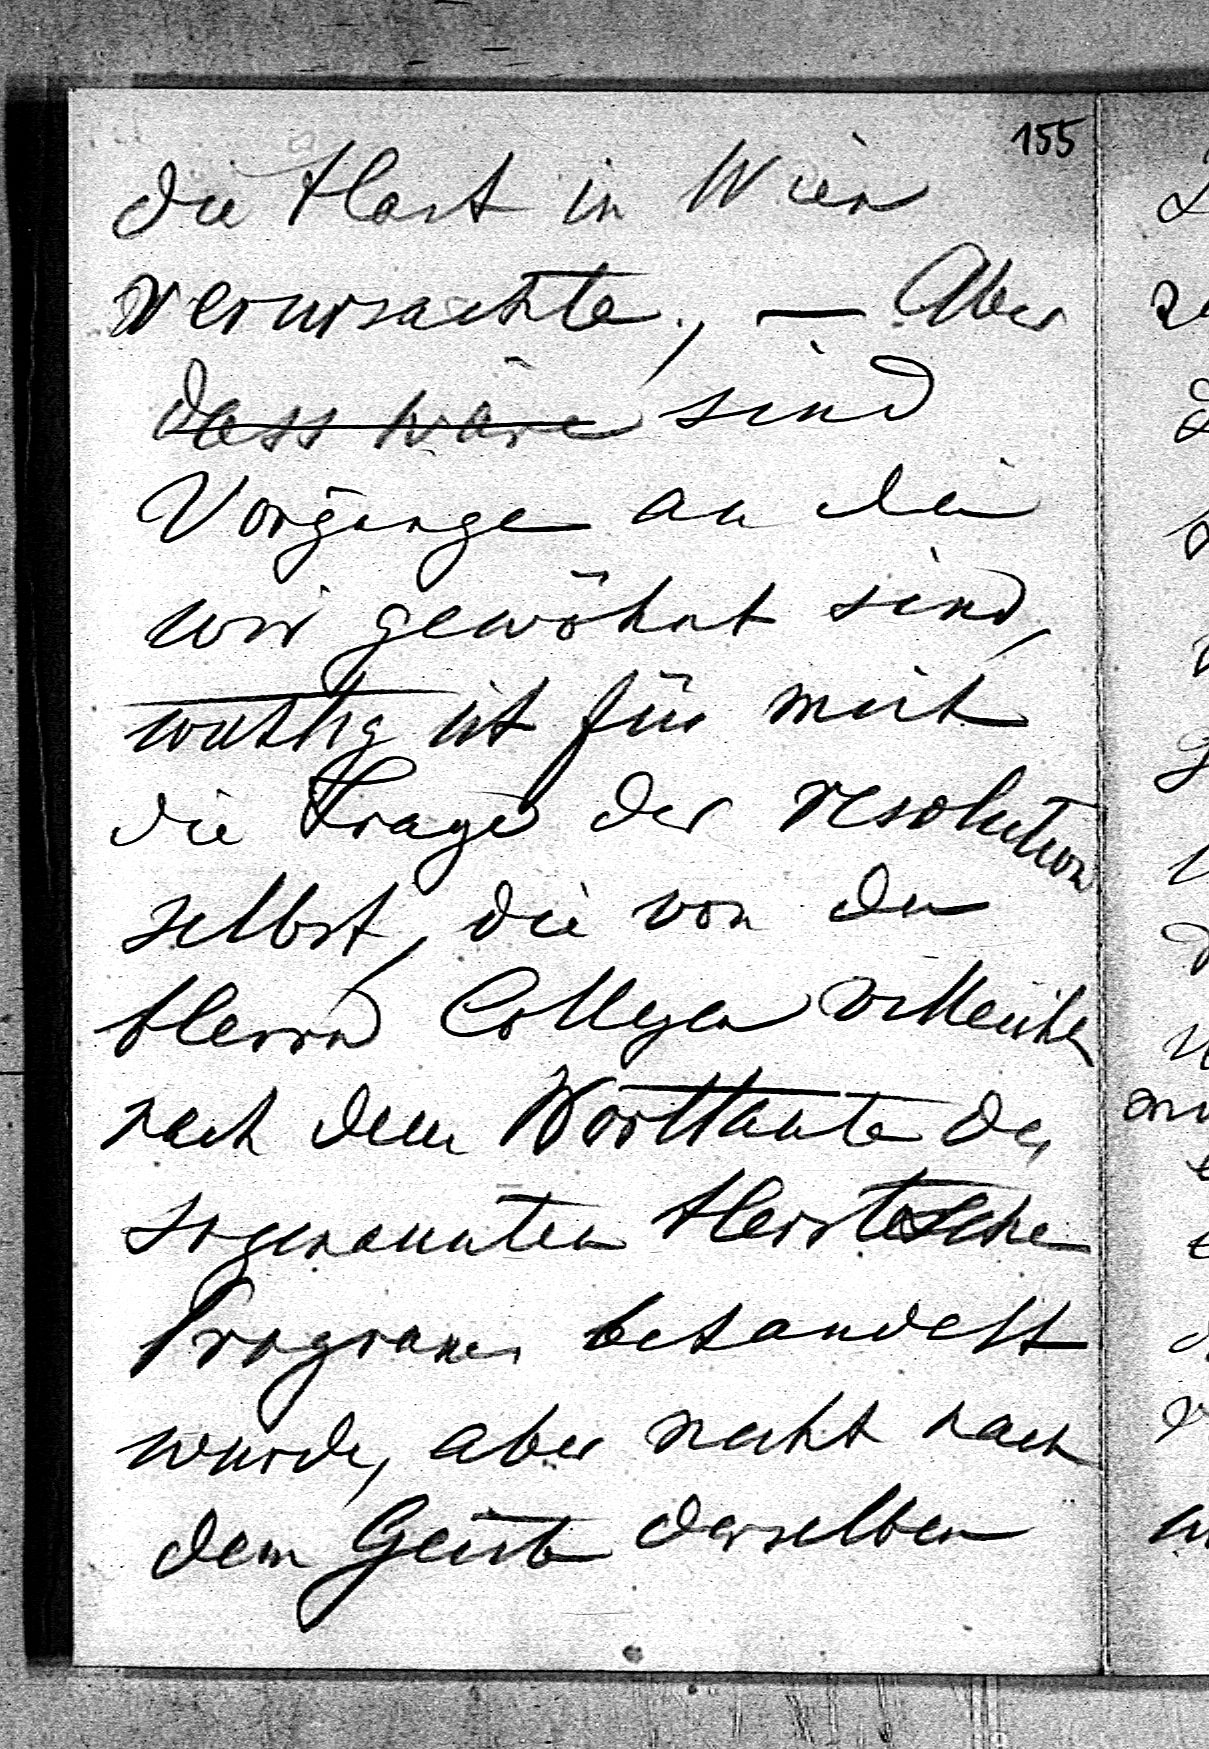 155
die Hast in Wien
verursachte, — Aber
dass wäre sind
Vorgänge an die
wir gewöhnt sind,
wichtig ist für mich
die Frage der resolution
selbst, die von den
Herrn Collegen vielleicht
nach dem Wortlaute des
sogenannten
Program behandelt
wurde, aber nicht nach
dem Geiste derselben